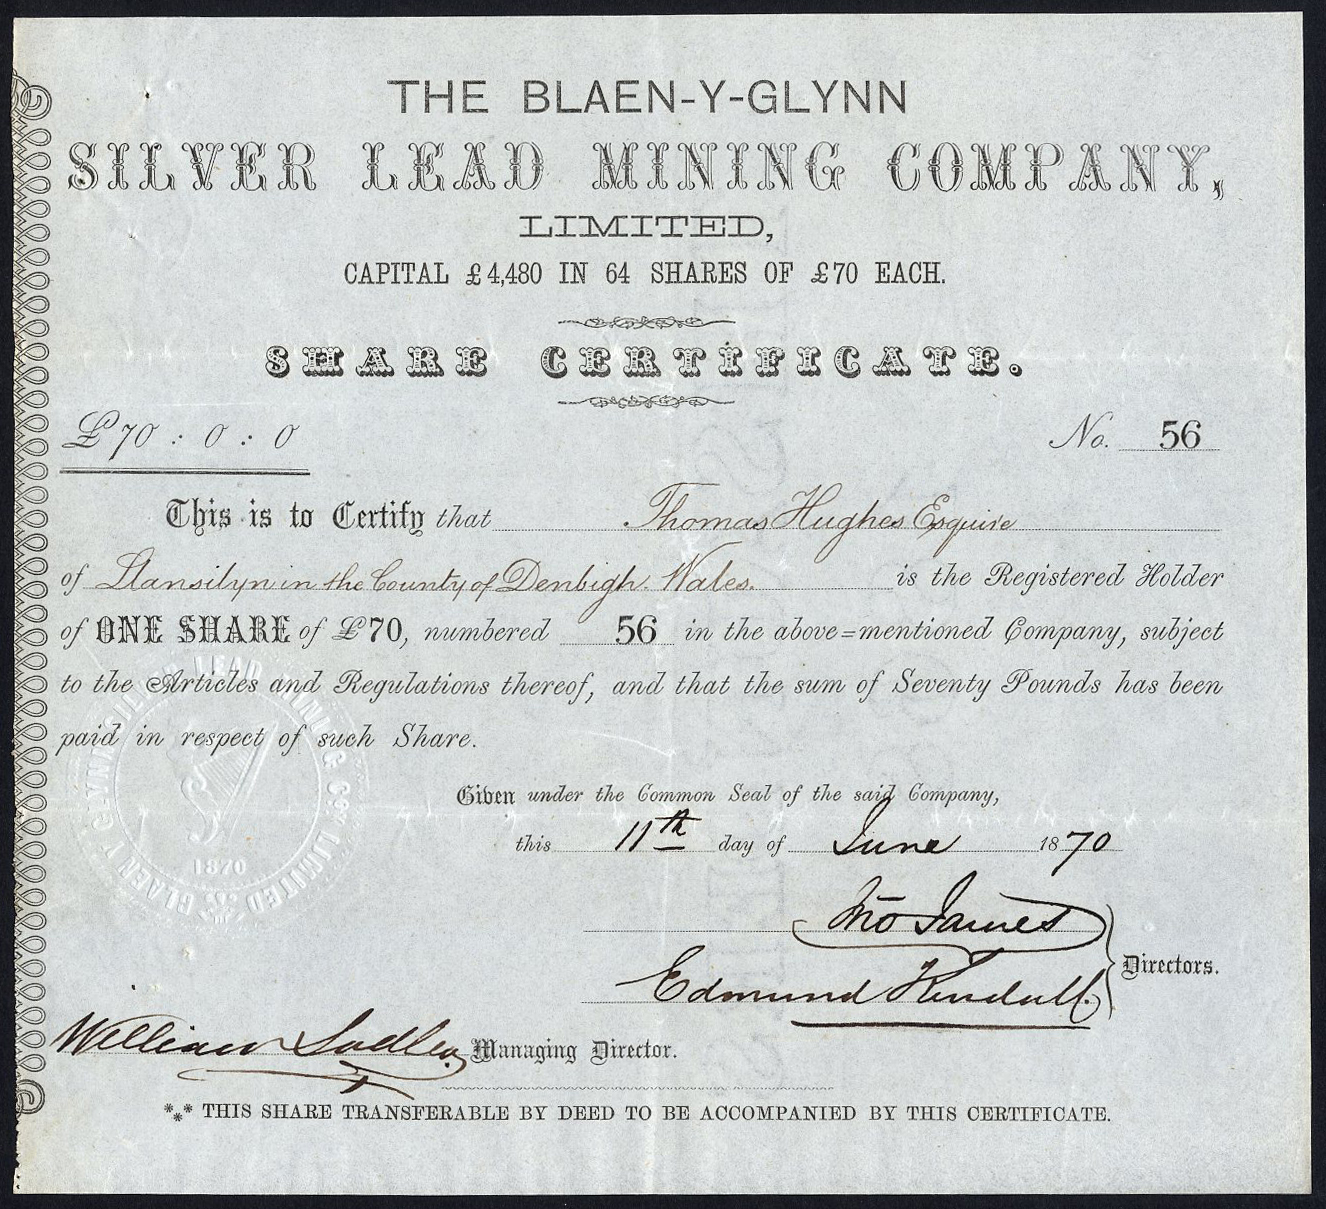 THE BLAEN-Y-GLYNN
SILVER LEAD MINING COMPANY,
LIMITED,
CAPITAL £4,480 IN 64 SHARES OF £70 EACH.
SHARE CERTIFICATE.
£70 : 0 : 0
No. 56
This is to Certify that Thomas Hughes Esquire
of Llansilyn in the County of Denbigh. Wales. is the Registered Holder
of ONE SHARE of £70, numbered 56 in the above=mentioned Company, subject
to the Articles and Regulations thereof, and that the sum of Seventy Pounds has been
paid in respect of such Share.
BLAEN Y GLYNN SILVER LEAD MINING COY LIMITED
1870
Given under the Common Seal of the said Company,
this 11th day of June 1870
Jno James
Edmund Kendall.
Directors.
William Sadler. Managing Director.
*** THIS SHARE TRANSFERABLE BY DEED TO BE ACCOMPANIED BY THIS CERTIFICATE.